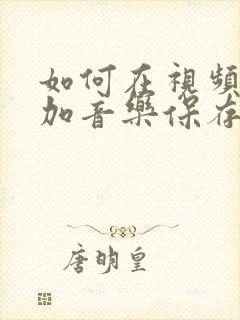 如何在視頻
加音樂保存
唐明皇